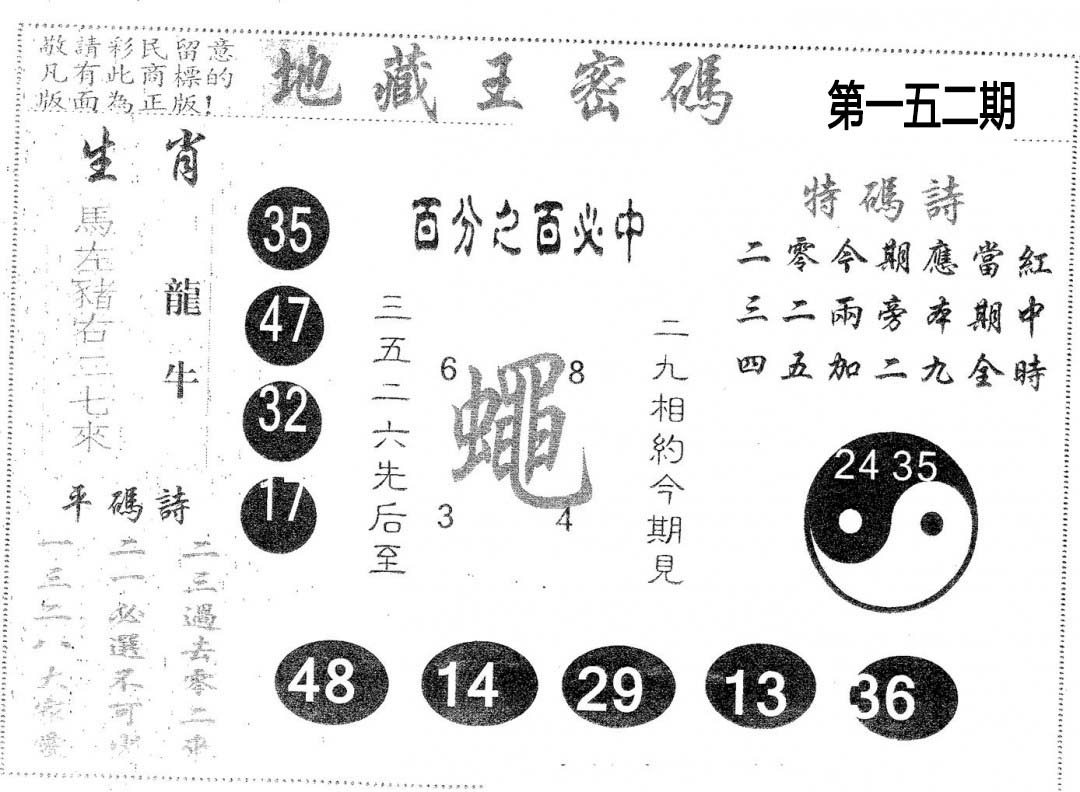 敬請彩民留意
凡有此商標的
版面為正版!
地藏王密碼
第一五二期
生肖
馬左豬右三七來
龍牛
35
47
32
17
百分之百必中
三五二六先后至
6
8
蠅
3
4
二九相約今期見
特碼詩
二零今期應當紅
三二兩旁本期中
四五加二九全時
24 35
平碼詩
一三二八大家愛
二一必選不可
二三過去零二來
48
14
29
13
36